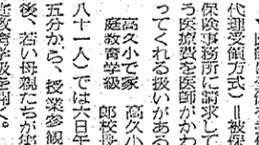 代理受領方式）＝被保
保険事務所に請求して
う医療費を医師がかわ
ってくれる扱いがある
高久小で家
庭教育学級
高久小
郎校長
八十一人）では六日午
五分から、授業参観
後、若い母親たちが